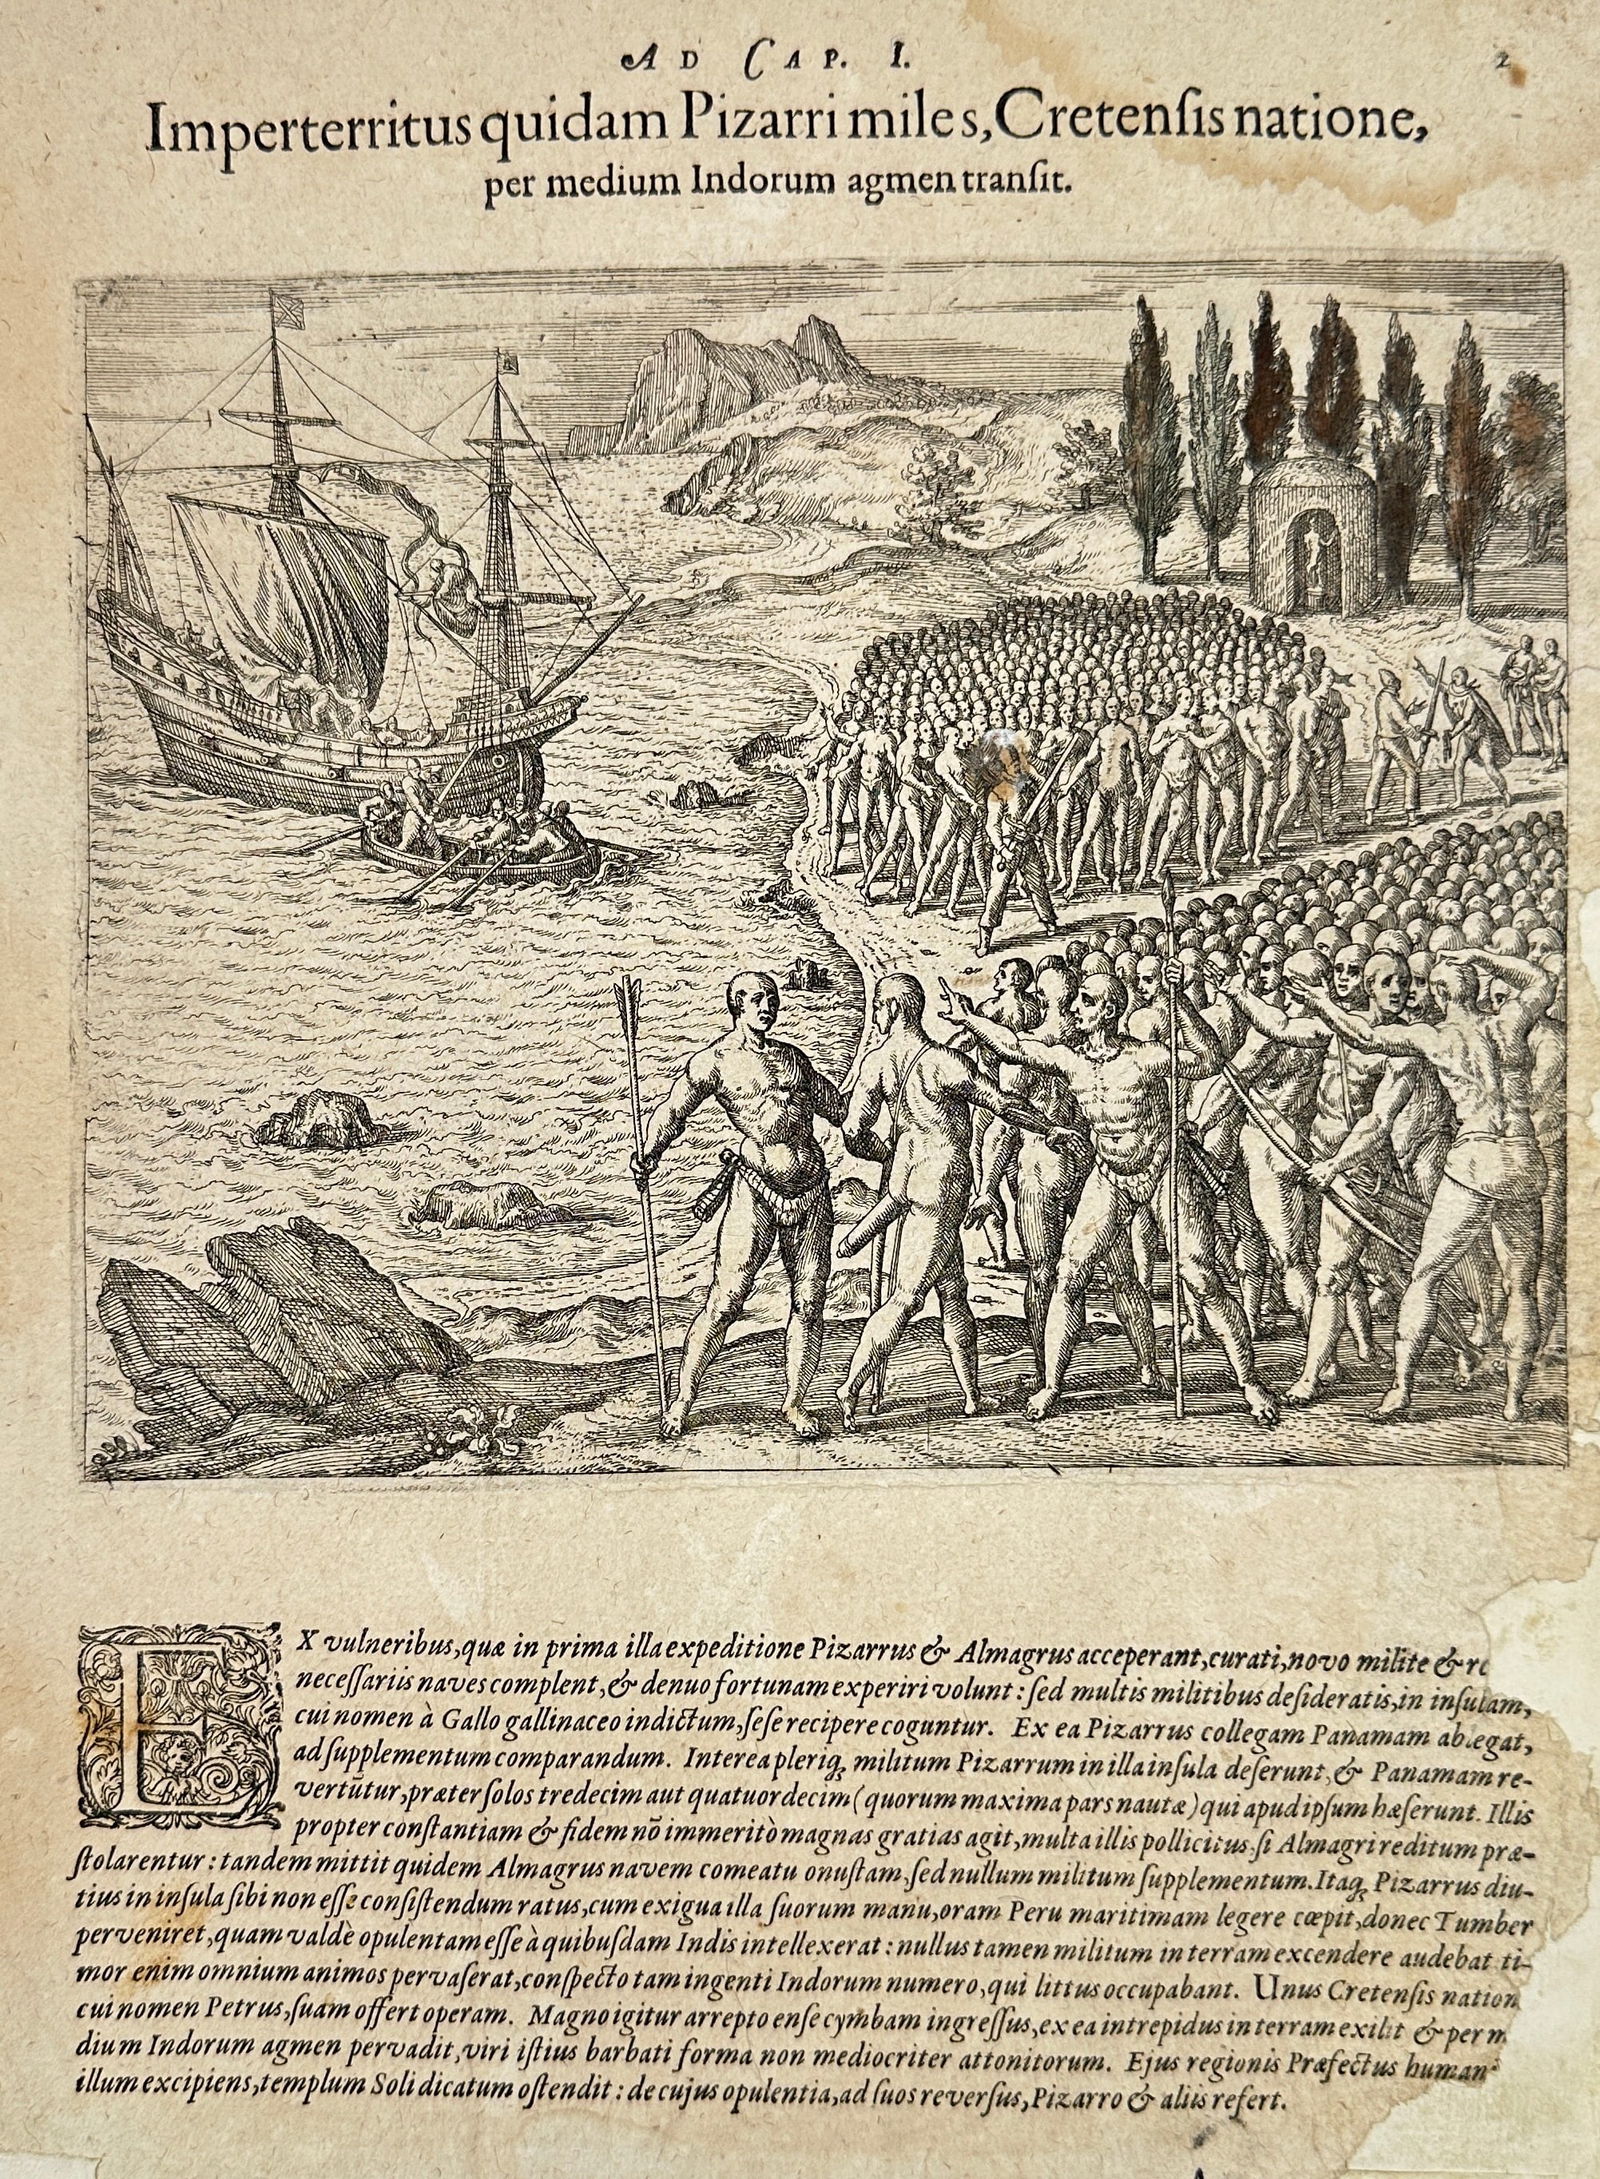 AD CAP. I.
2
Imperterritus quidam Pizarri miles, Cretenſis natione,
per medium Indorum agmen tranſit.
EX vulneribus, quæ in prima illa expeditione Pizarrus & Almagrus acceperant, curati, novo milite &
neceſſariis naves complent, & denuo fortunam experiri volunt: ſed multis militibus deſideratis, in inſulam,
cui nomen à Gallo gallinaceo indictum, ſeſe recipere coguntur. Ex ea Pizarrus collegam Panamam ablegat,
ad ſupplementum comparandum. Interea pleriqꝫ militum Pizarrum in illa inſula deſerunt, & Panamam re-
vertūtur, præter ſolos tredecim aut quatuordecim (quorum maxima pars nautæ) qui apud ipſum hæſerunt. Illis
propter conſtantiam & fidem nō immeritò magnas gratias agit, multa illis pollicitus, ſi Almagri reditum præ-
ſtolarentur: tandem mittit quidem Almagrus navem comeatu onuſtam, ſed nullum militum ſupplementum. Itaqꝫ Pizarrus diu-
tius in inſula ſibi non eſſe conſiſtendum ratus, cum exigua illa ſuorum manu, oram Peru maritimam legere cœpit, donec Tumbez
perveniret, quam valdè opulentam eſſe à quibuſdam Indis intellexerat: nullus tamen militum in terram excendere audebat ti-
mor enim omnium animos pervaſerat, conſpecto tam ingenti Indorum numero, qui littus occupabant. Unus Cretenſis nation
cui nomen Petrus, ſuam offert operam. Magno igitur arrepto enſe cymbam ingreſſus, ex ea intrepidus in terram exilit & per m
dium Indorum agmen pervadit, viri iſtius barbati forma non mediocriter attonitorum. Ejus regionis Præfectus human
illum excipiens, templum Soli dicatum oſtendit: de cujus opulentia, ad ſuos reverſus, Pizarro & aliis refert.